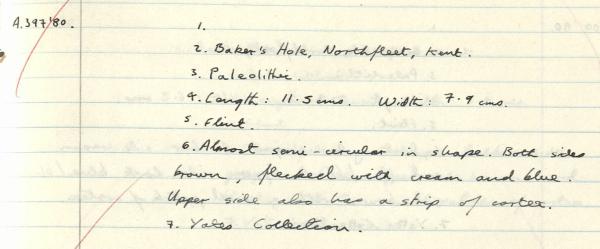 A.397'80.
1.
2. Baker's Hole, Northfleet, Kent.
3. Paleolithic.
4. Length: 11.5 cms. Width: 7.9 cms.
5. Flint.
6. Almost semi-circular in shape. Both sides
brown, flecked with cream and blue.
Upper side also has a strip of cortex.
7. Yates Collection.